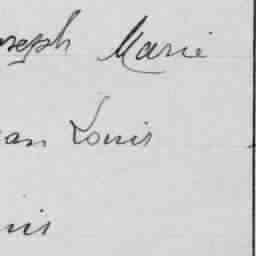 oseph Marie
ean Louis
uis